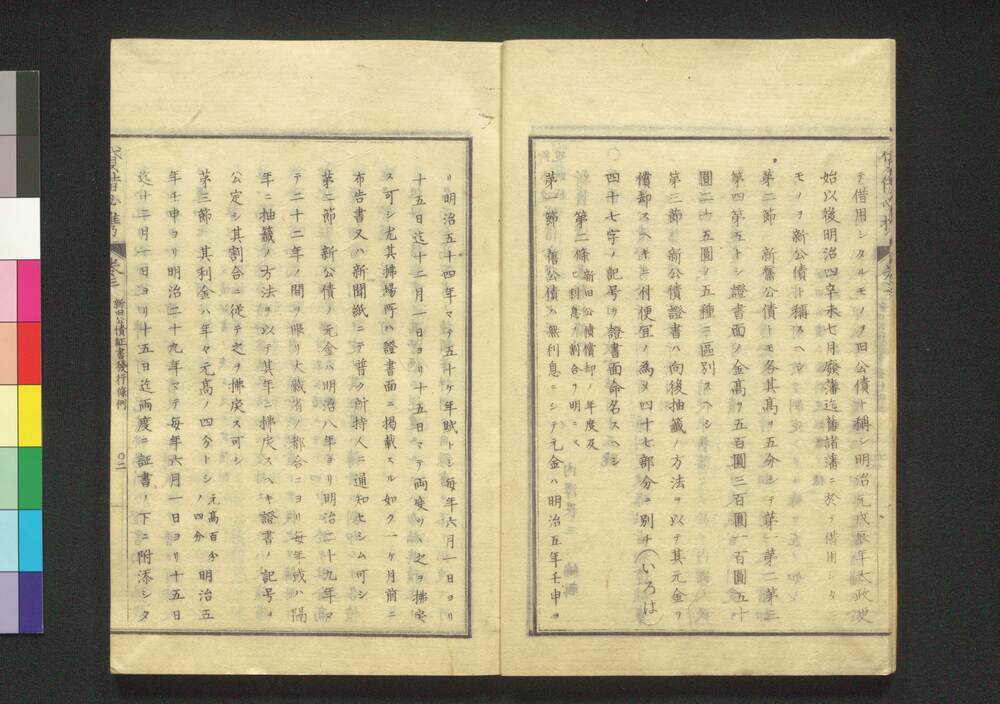 テ借用シタルモノヲ旧公債ト稱シ明治元戊辰年太政更
始以後明治四辛未七月廢藩迄舊諸藩ニ於テ借用シタ
モノヲ新公債ト稱スヘシ
第二節 新舊公債トモ各其高ヲ五分シテ第一第二第三
第四第五トシ證書面ノ金高ヲ五百圓三百圓一百圓五十
圓二十五圓ノ五種ニ區別スヘシ
第三節 新公債證書ハ向後抽籤ノ方法ヲ以テ其元金ヲ
償却スヘキニ付便宜ノ為メ四十七部分ニ別チ(いろは)
四十七字ノ記号ヲ證書面命名スヘシ
第二條 新旧公債償却ノ年度及ヒ利息ノ割合ヲ明ニス
第一節 舊公債ハ無利息ニシテ元金ハ明治五年壬申ヨ
リ明治五十四年マテ五十ケ年賦トシ毎年六月一日ヨリ
十五日迄十二月一日ヨリ十五日マテ両度ツヽ之ヲ拂戻
ス可シ尤其拂場所ハ證書面ニ掲載スル如ク一ヶ月前ニ
布告書又ハ新聞紙ニテ普ク所持人ニ通知セシム可シ
第二節 新公債ノ元金ハ明治八年ヨリ明治二十九年マ
テ二十二年ノ間ヲ限リ大藏省ノ都合ニヨリ毎年或ハ隔
年ニ抽籤ノ方法ヲ以テ其年ニ拂戻スヘキ證書ノ記号ヲ
公定シ其割合ニ従テ之ヲ拂戻ス可シ
第三節 其利金ハ年々元高ノ四分トシ元高百分ノ四分明治五
年壬申ヨリ明治二十九年マテ毎年六月一日ヨリ十五日
迄十二月一日ヨリ十五日迄両度ニ証書ノ下ニ附添シタ
新旧公債証書發行條例
〇二